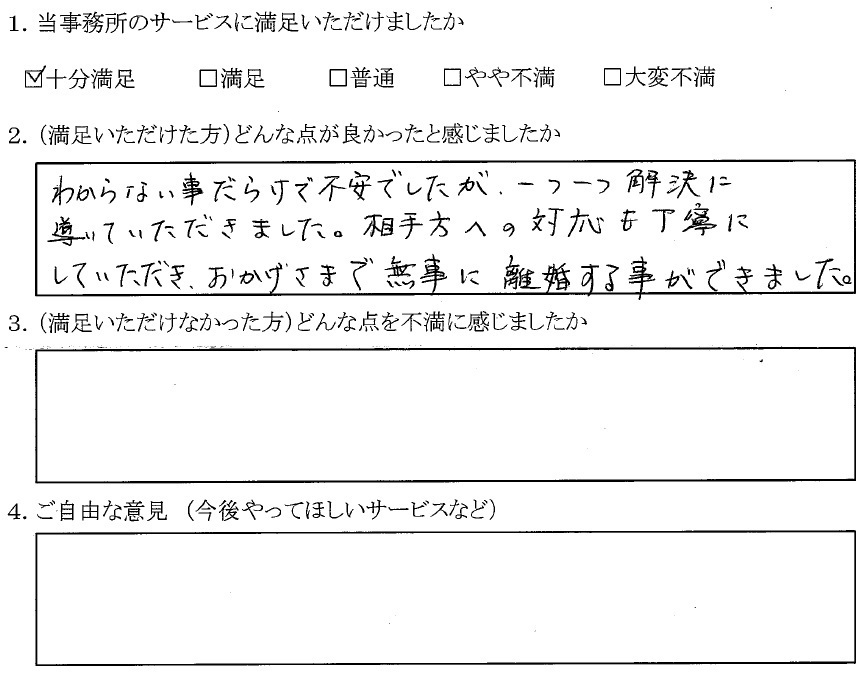 1. 当事務所のサービスに満足いただけましたか
☑十分満足 □満足 □普通 □やや不満 □大変不満
2. (満足いただけた方)どんな点が良かったと感じましたか
わからない事だらけで不安でしたが、一つ一つ解決に
導いていただきました。相手方への対応も丁寧に
していただき、おかげさまで無事に離婚する事ができました。
3. (満足いただけなかった方)どんな点を不満に感じましたか
4. ご自由な意見 (今後やってほしいサービスなど)